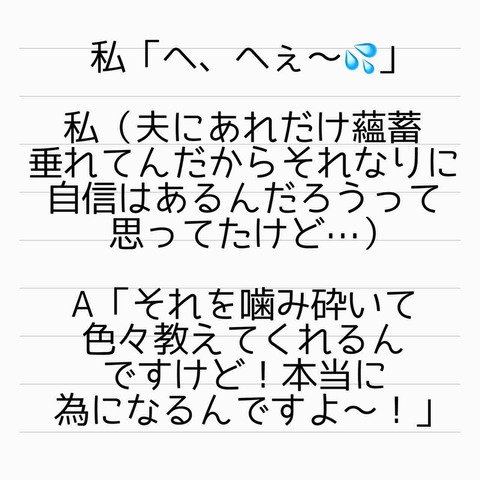 私「へ、へぇ〜💦」
私（夫にあれだけ蘊蓄
垂れてんだからそれなりに
自信はあるんだろうって
思ってたけど…）
A「それを噛み砕いて
色々教えてくれるん
ですけど！本当に
為になるんですよ〜！」